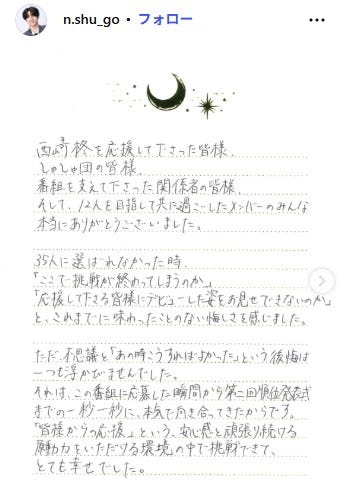 n.shu_go • フォロー
西﨑柊を応援して下さった皆様、
しゅしゅ団の皆様、
番組を支えて下さった関係者の皆様、
そして、12人を目指して共に過ごしたメンバーのみんな
本当にありがとうございました。
35人に選ばれなかった時、
「ここで挑戦が終わってしまうのか」
「応援して下さる皆様にデビューした姿をお見せできないのか」
と、これまでに味わったことのない悔しさを感じました。
ただ、不思議と「あの時こうすればよかった。」という後悔は
一つも浮かびませんでした。
それは、この番組に応募した瞬間から第二回順位発表式
までの一秒一秒に、本気で向き合ってきたからです。
「皆様からの応援」という、安心感と頑張り続ける
原動力をいただける環境の中で挑戦できて、
とても幸せでした。